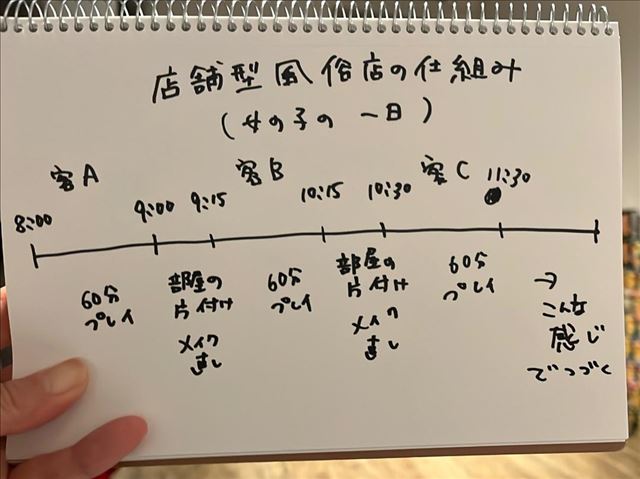 店舗型風俗店の仕組み
(女の子の 一日)
客A
客B
客C
8:00
9:00
9:15
10:15
10:30
11:30
60分
プレイ
部屋の
片付け
メイク
直し
60分
プレイ
部屋の
片付け
メイク
直し
60分
プレイ
→
こんな
感じ
でつづく